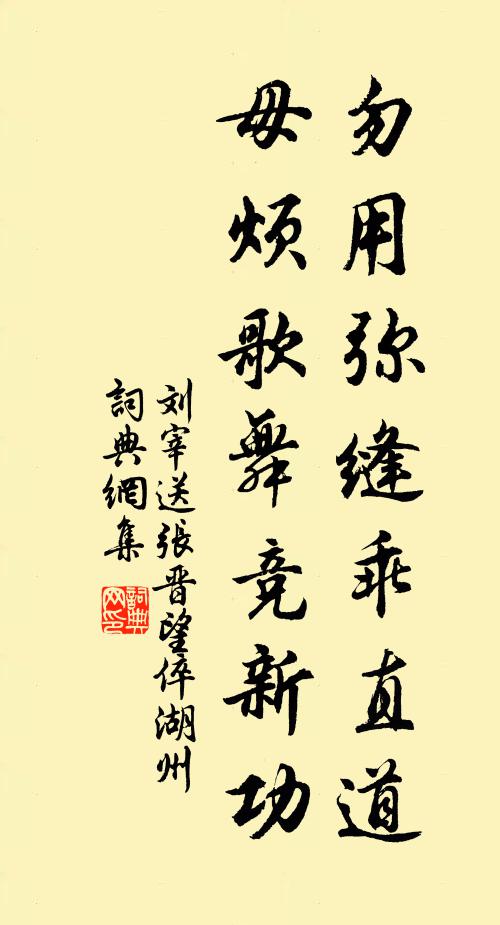 勿用弥缝乖直道
毋烦歌舞竞新功
刘宰送張晋望倅湖州
詞典網集
詞典网印